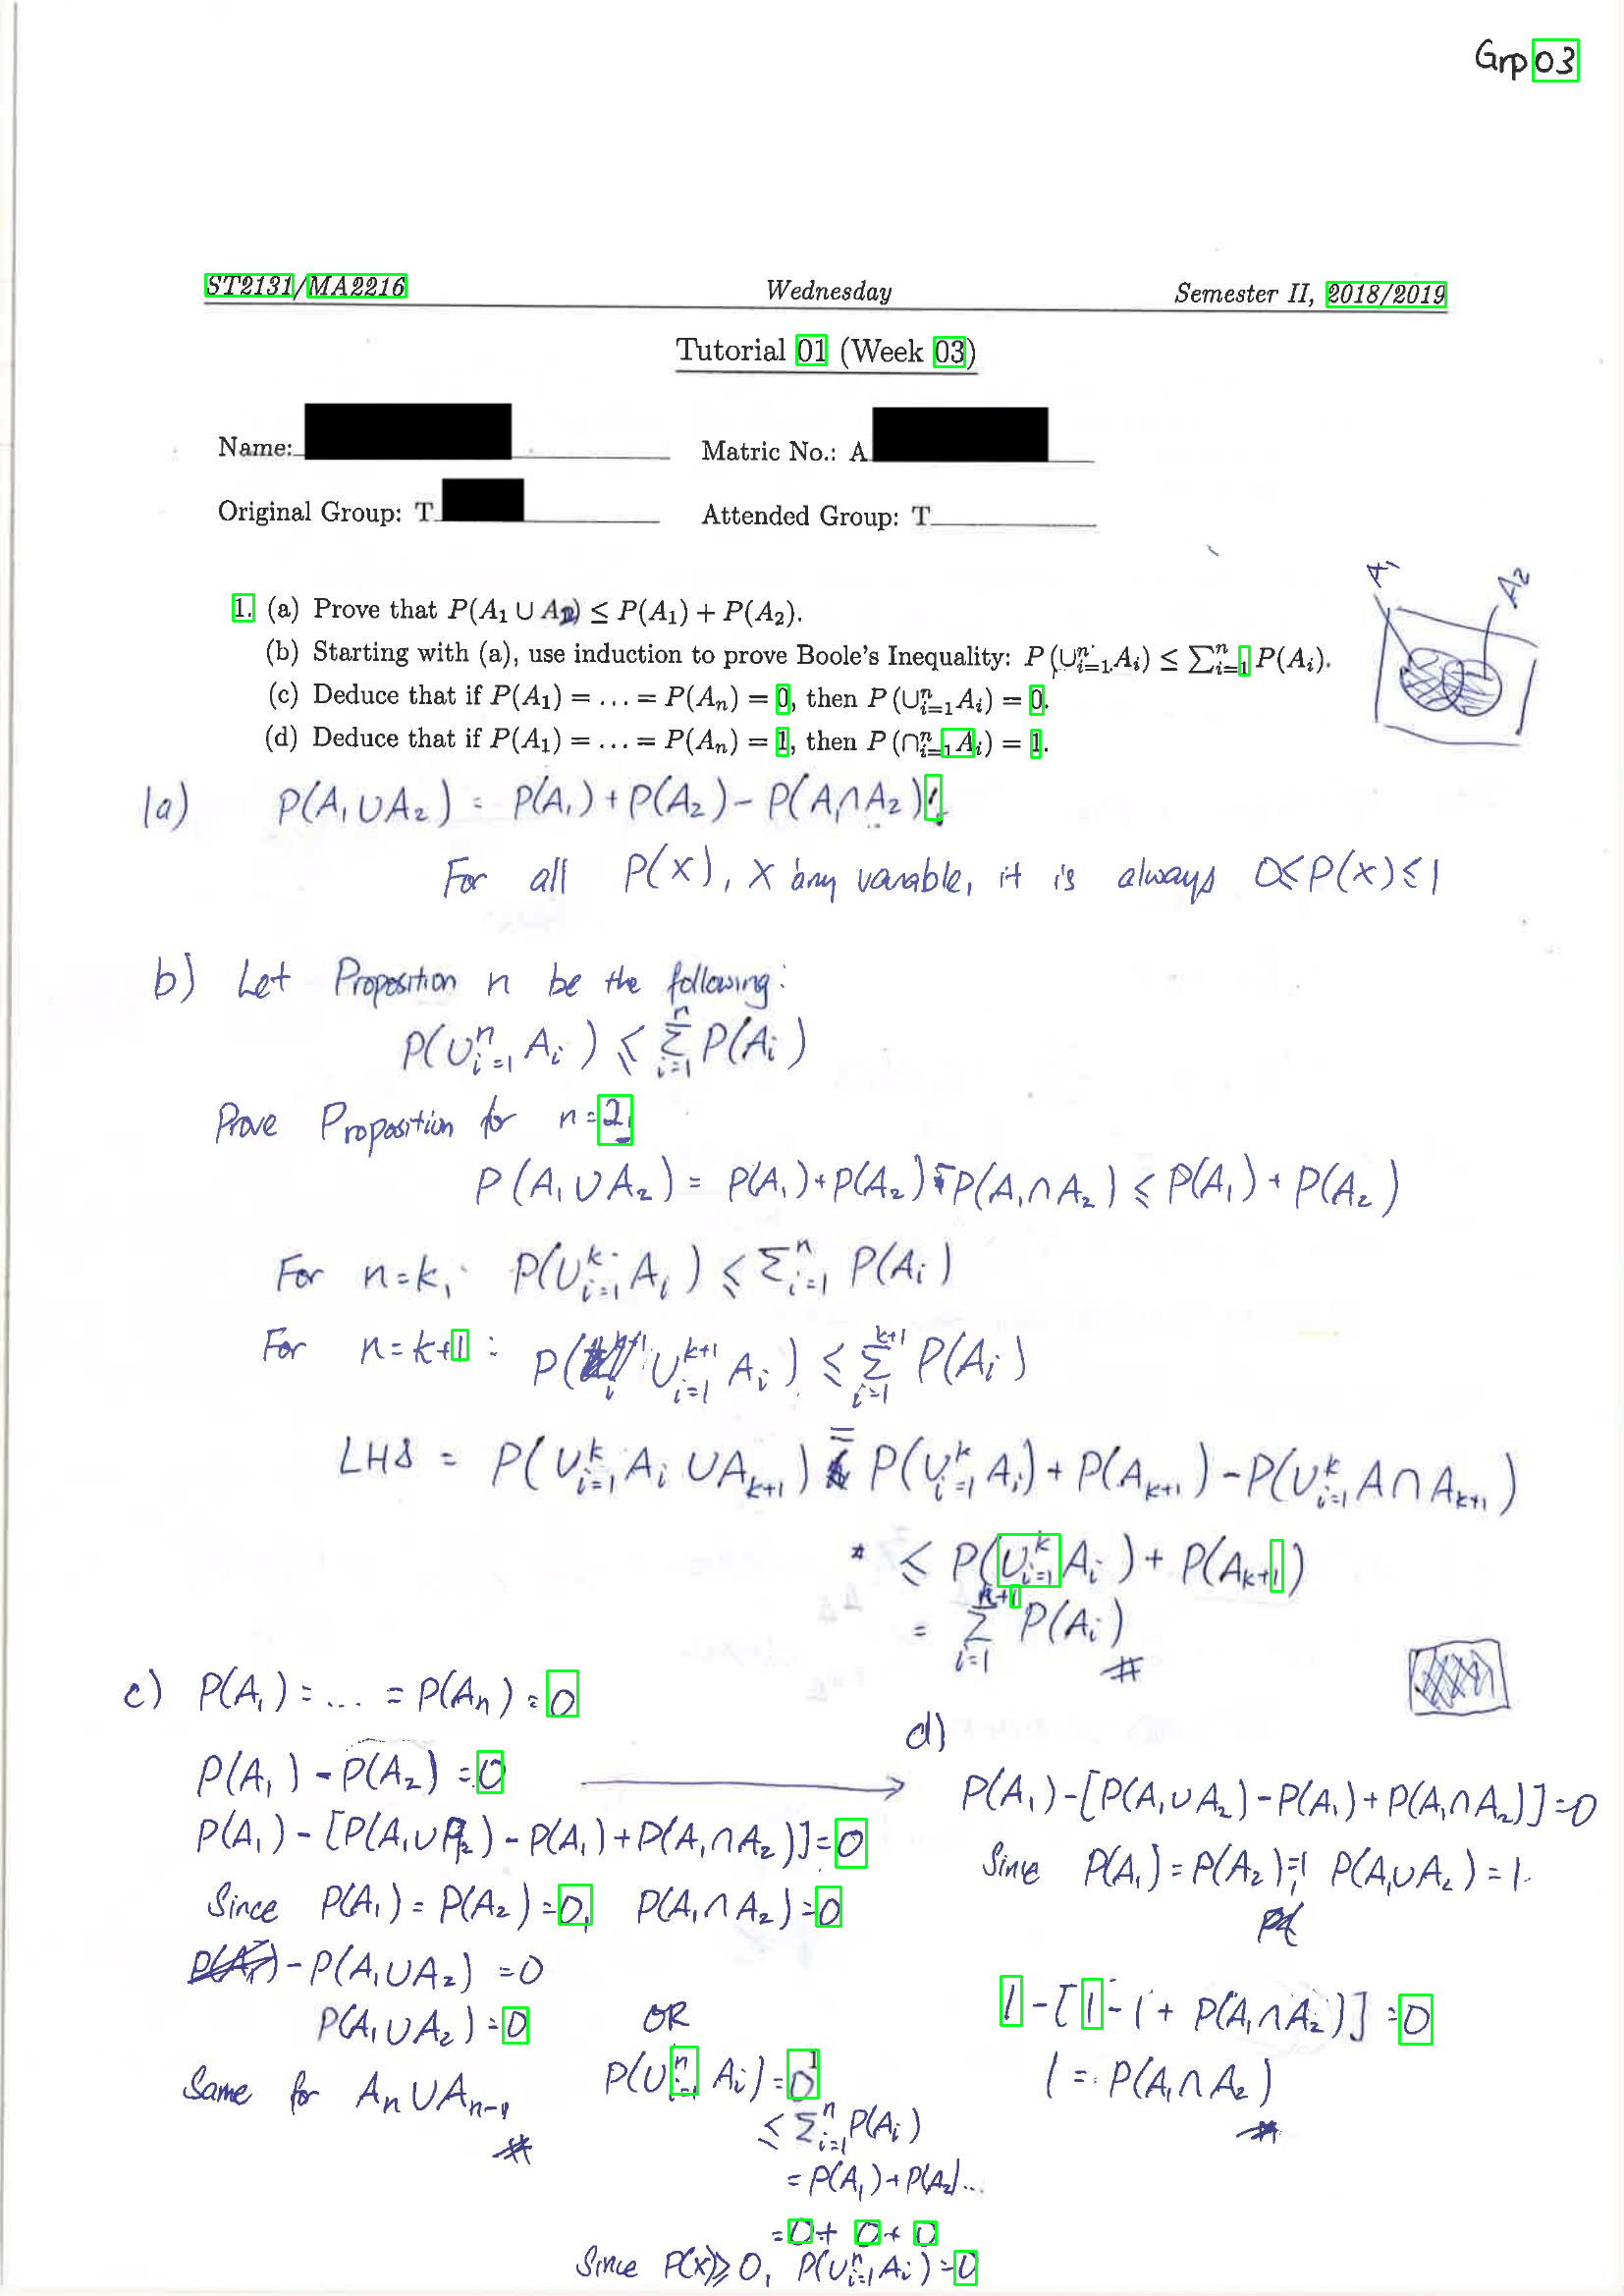 Grp 03
ST2131/MA2216 Wednesday Semester II, 2018/2019
Tutorial 01 (Week 03)
Name: Matric No.: A
Original Group: T Attended Group: T
A₁ A₂
1. (a) Prove that P(A₁ ∪ A₂) ≤ P(A₁) + P(A₂).
(b) Starting with (a), use induction to prove Boole's Inequality: P (∪ⁿᵢ₌₁Aᵢ) ≤ ∑ⁿᵢ₌₁ P(Aᵢ).
(c) Deduce that if P(A₁) = ... = P(Aₙ) = 0, then P (∪ⁿᵢ₌₁Aᵢ) = 0.
(d) Deduce that if P(A₁) = ... = P(Aₙ) = 1, then P (∩ⁿᵢ₌₁Aᵢ) = 1.
1a) P(A₁∪A₂) = P(A₁)+P(A₂)-P(A₁∩A₂)
For all P(X), X any variable, it is always 0≤P(x)≤1
b) Let Proposition n be the following:
P(∪ⁿᵢ₌₁ Aᵢ) ≤ ∑ⁿᵢ₌₁ P(Aᵢ)
Prove Proposition for n=2,
P(A₁∪A₂) = P(A₁)+P(A₂)-P(A₁∩A₂) ≤ P(A₁)+P(A₂)
For n=k, P(∪ᵏᵢ₌₁Aᵢ) ≤ ∑ⁿᵢ₌₁ P(Aᵢ)
For n=k+1: P(∪ᵏ⁺¹ᵢ₌₁ Aᵢ) ≤ ∑ᵏ⁺¹ᵢ₌₁ P(Aᵢ)
LHS = P(∪ᵏᵢ₌₁ Aᵢ ∪Aₖ₊₁) = P(∪ᵏᵢ₌₁ Aᵢ)+P(Aₖ₊₁)-P(∪ᵏᵢ₌₁A∩Aₖ₊₁)
* ≤ P(∪ᵏᵢ₌₁Aᵢ)+P(Aₖ₊₁)
= ∑ᵢ₌₁ P(Aᵢ) #
c) P(A₁)=... = P(Aₙ)=0
P(A₁)-P(A₂)=0
P(A₁)-[P(A₁∪A₂)-P(A₁)+P(A₁∩A₂)]=0
Since P(A₁)=P(A₂)=0, P(A₁∩A₂)=0
-P(A₁∪A₂)=0
P(A₁∪A₂)=0
Same for Aₙ∪Aₙ₋₁ #
OR
P(∪ⁿᵢ₌₁ Aᵢ)=0
≤ ∑ⁿᵢ₌₁P(Aᵢ)
=P(A₁)+P(A₂)...
=0+0+0
Since P(X)≥0, P(∪ⁿᵢ₌₁Aᵢ)=0
d)
P(A₁)-[P(A₁∪A₂)-P(A₁)+P(A₁∩A₂)]=0
Since P(A₁)=P(A₂)=1, P(A₁∪A₂)=1.
1-[1-1+P(A₁∩A₂)]=0
1=P(A₁∩A₂) #